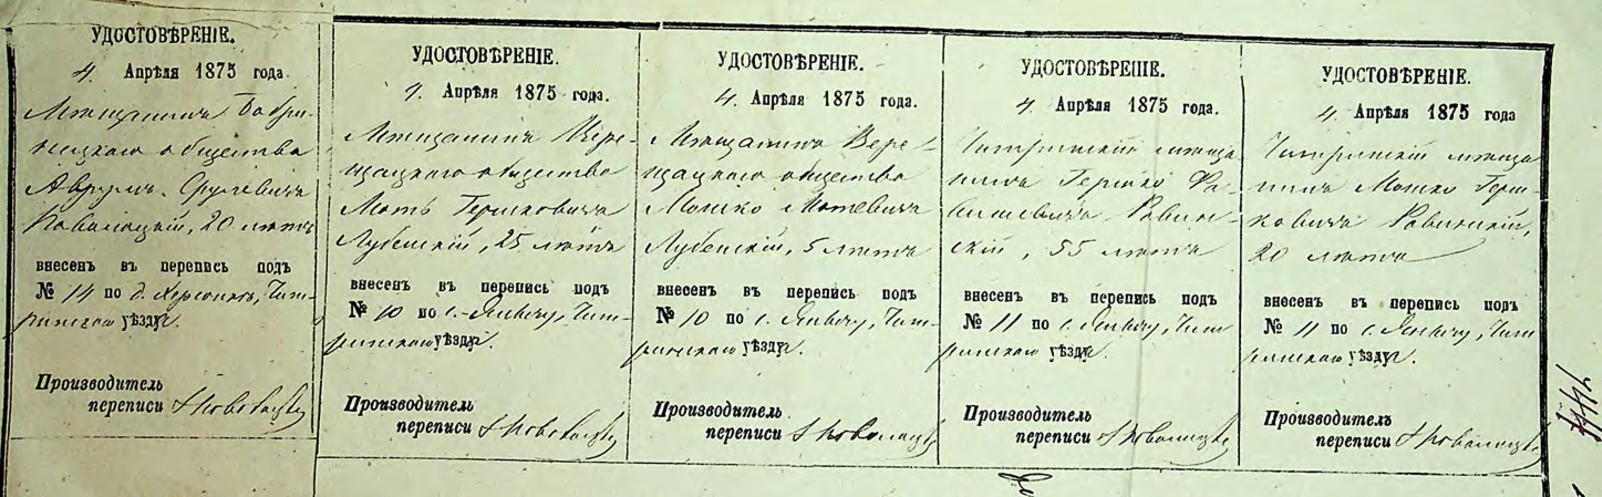 УДОСТОВѢРЕНІЕ.
4. Апрѣля 1875 года.
Мѣщанинъ Бобри-
нецкаго общества
Аврумъ
20 лѣтъ
внесенъ въ перепись подъ
№ 14 по д. Херсонкѣ, Чиги-
ринскаго уѣзду.
Производитель
переписи
УДОСТОВѢРЕНІЕ.
4. Апрѣля 1875 года.
Мѣщанинъ Вере-
щацкаго общества
Моть Гершковичъ
Лубенскій, 25 лѣтъ
внесенъ въ перепись подъ
№ 10 по с.
уѣзду.
Производитель
переписи
УДОСТОВѢРЕНІЕ.
4. Апрѣля 1875 года.
Мѣщанинъ Вере-
щацкаго общества
Мошко Мотевичъ
Лубенскій, 5 лѣтъ
внесенъ въ перепись подъ
№ 10 по с.
уѣзду.
Производитель
переписи
УДОСТОВѢРЕНІЕ.
4. Апрѣля 1875 года.
Чигиринскій мѣща
нинъ Гершко
Равин-
скій, 55 лѣтъ
внесенъ въ перепись подъ
№ 11 по с.
уѣзду.
Производитель
переписи
УДОСТОВѢРЕНІЕ.
4. Апрѣля 1875 года
Чигиринскій мѣща
нинъ Мошко Герш-
ковичъ Равинскій,
20 лѣтъ
внесенъ въ перепись подъ
№ 11 по с.
уѣзду.
Производитель
переписи